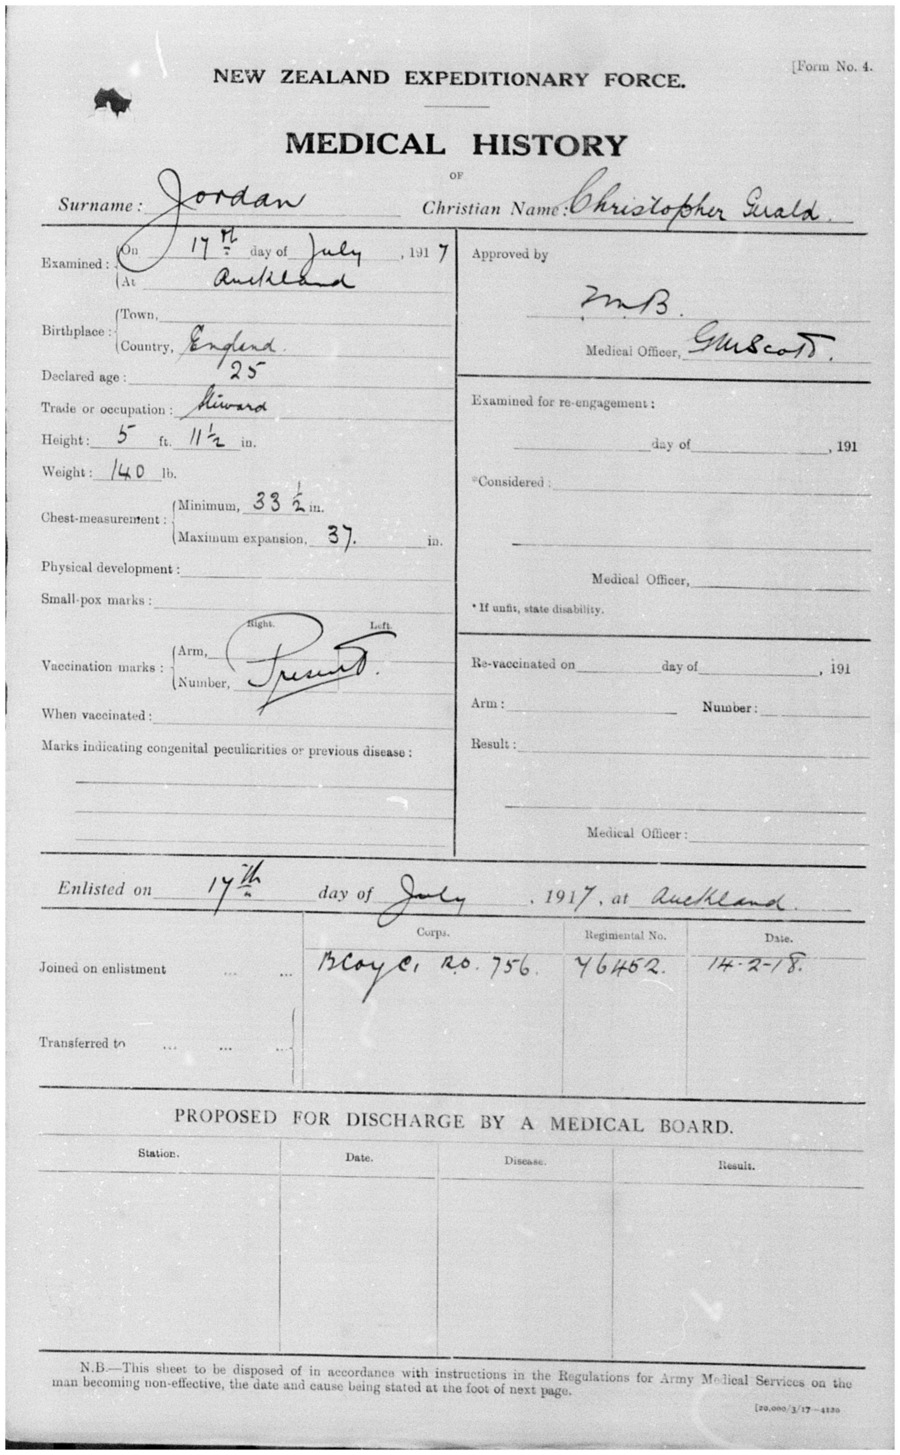 [Form No. 4.
NEW ZEALAND EXPEDITIONARY FORCE.
MEDICAL HISTORY
OF
Surname: Jordan Christian Name: Christopher Gerald.
Examined: On 17th day of July, 1917
At Auckland
Birthplace: Town,
Country, England.
Declared age: 25
Trade or occupation: Steward
Height: 5 ft. 11½ in.
Weight: 140 lb.
Chest-measurement: Minimum, 33½ in.
Maximum expansion, 37. in.
Physical development:
Small-pox marks:
Right. Left.
Vaccination marks: Arm,
Number, Present.
When vaccinated:
Marks indicating congenital peculiarities or previous disease:
Approved by
M.B.
Medical Officer, GWScott.
Examined for re-engagement:
day of , 191
*Considered:
Medical Officer,
* If unfit, state disability.
Re-vaccinated on day of , 191
Arm: Number:
Result:
Medical Officer:
Enlisted on 17th day of July, 1917, at Auckland.
Corps. Regimental No. Date.
Joined on enlistment ... ... B Coy C, R.O. 756. 76452. 14-2-18.
Transferred to ... ... ...
PROPOSED FOR DISCHARGE BY A MEDICAL BOARD.
Station. Date. Disease. Result.
N.B.—This sheet to be disposed of in accordance with instructions in the Regulations for Army Medical Services on the
man becoming non-effective, the date and cause being stated at the foot of next page.
[20,000/3/17—4120